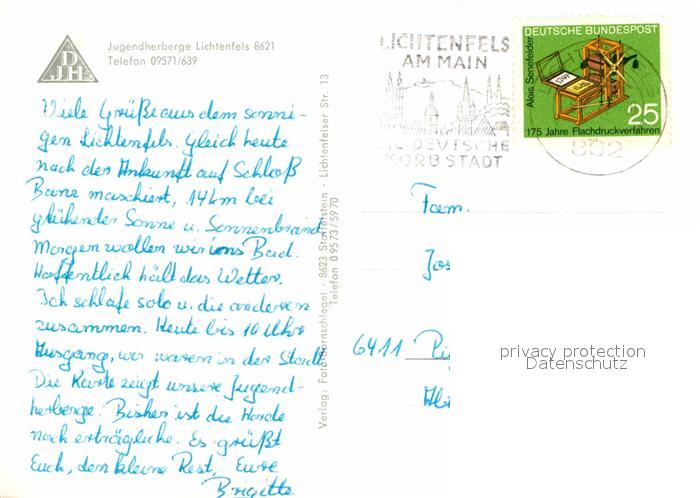 DJH
Jugendherberge Lichtenfels 8621
Telefon 09571/639
Viele Grüße aus dem sonni-
gen Lichtenfels. Gleich heute
nach der Ankunft auf Schloß
Banz maschiert, 14 km bei
glühender Sonne u. Sonnenbrand.
Morgen wollen wir ins Bad.
Hoffentlich hält das Wetter.
Ich schlafe solo u. die anderen
zusammen. Heute bis 10 Uhr
Ausgang, wir waren in der Stadt.
Die Karte zeigt unsere Jugend-
herberge. Bisher ist die Horde
noch erträgliche. Es grüßt
Euch, den kleine Rest, Eure
Brigitte
Verlag: Foto Bornschlegel · 8623 Staffelstein · Lichtenfelser Str. 13
Telefon 09573/5970
LICHTENFELS
AM MAIN
DEUTSCHE
KORBSTADT
862
DEUTSCHE BUNDESPOST
Alois Senefelder
25
175 Jahre Flachdruckverfahren
Fam.
Jos
6411
privacy protection
Datenschutz